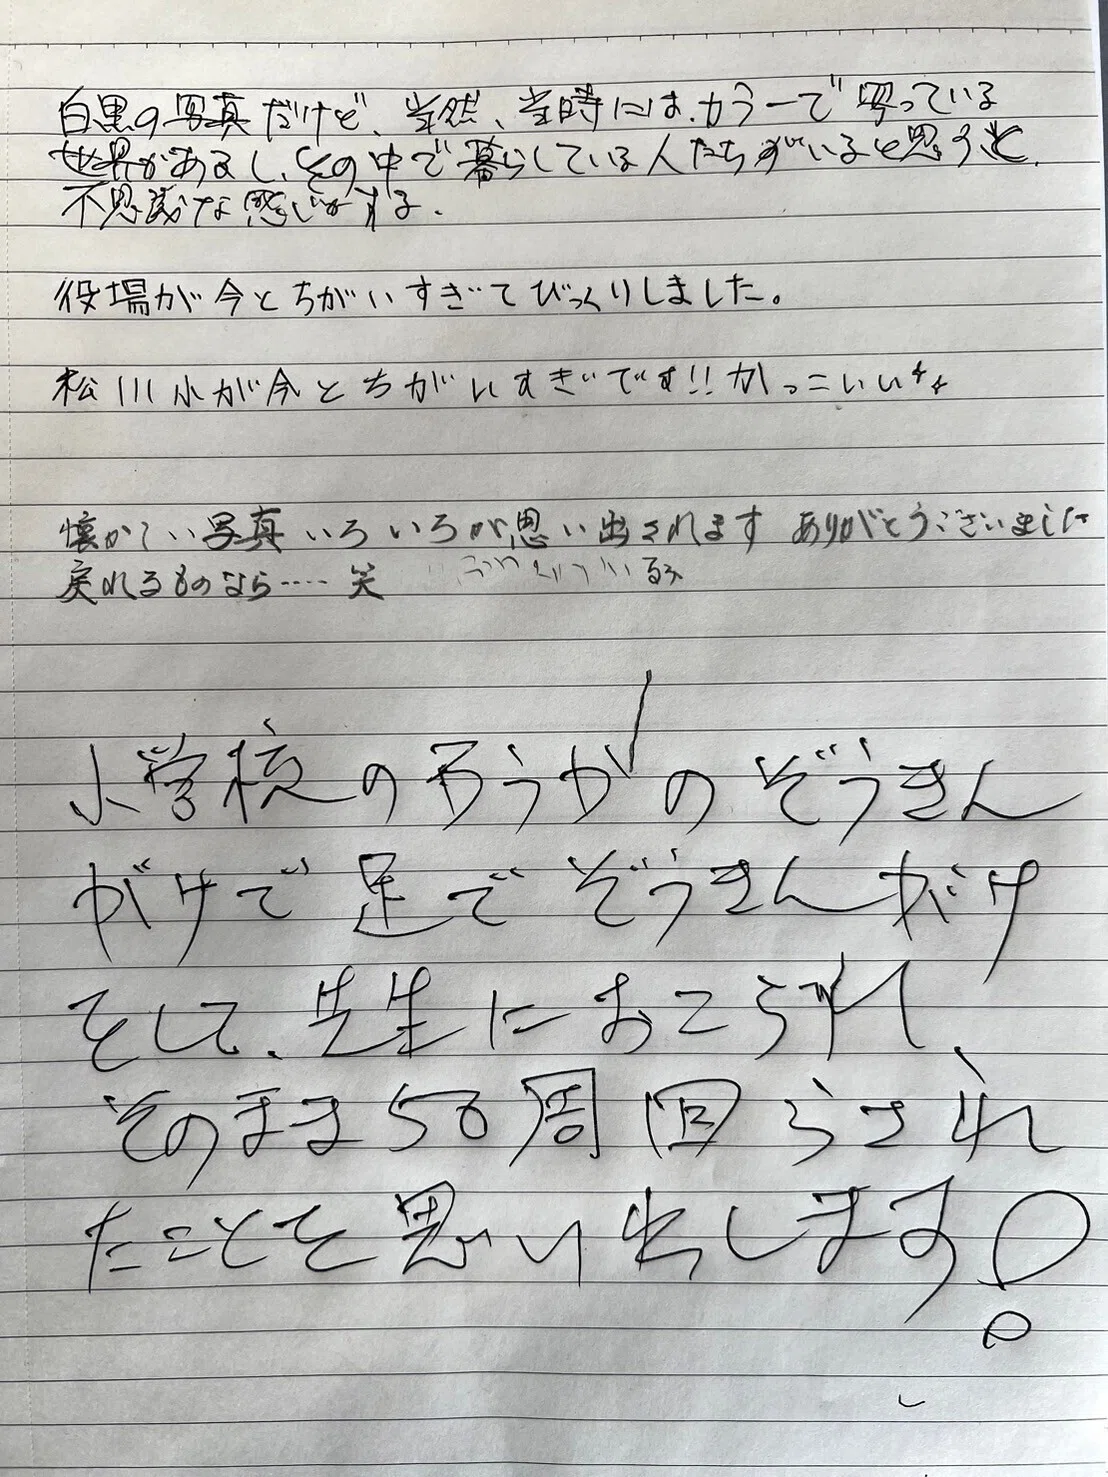 白黒の写真だけど、当然、当時にはカラーで写っている
世界があるし、その中で暮らしている人たちがいると思うと、
不思議な感じがする。
役場が今とちがいすぎてびっくりしました。
松川小が今とちがいすぎです!!かっこいい
懐かしい写真 いろいろが思い出されます ありがとうございました
戻れるものなら…… 笑
小学校のろうかのぞうきん
がけで足でぞうきんがけ
そして、先生におこられ、
そのまま50周回らされ
たことを思い出します!